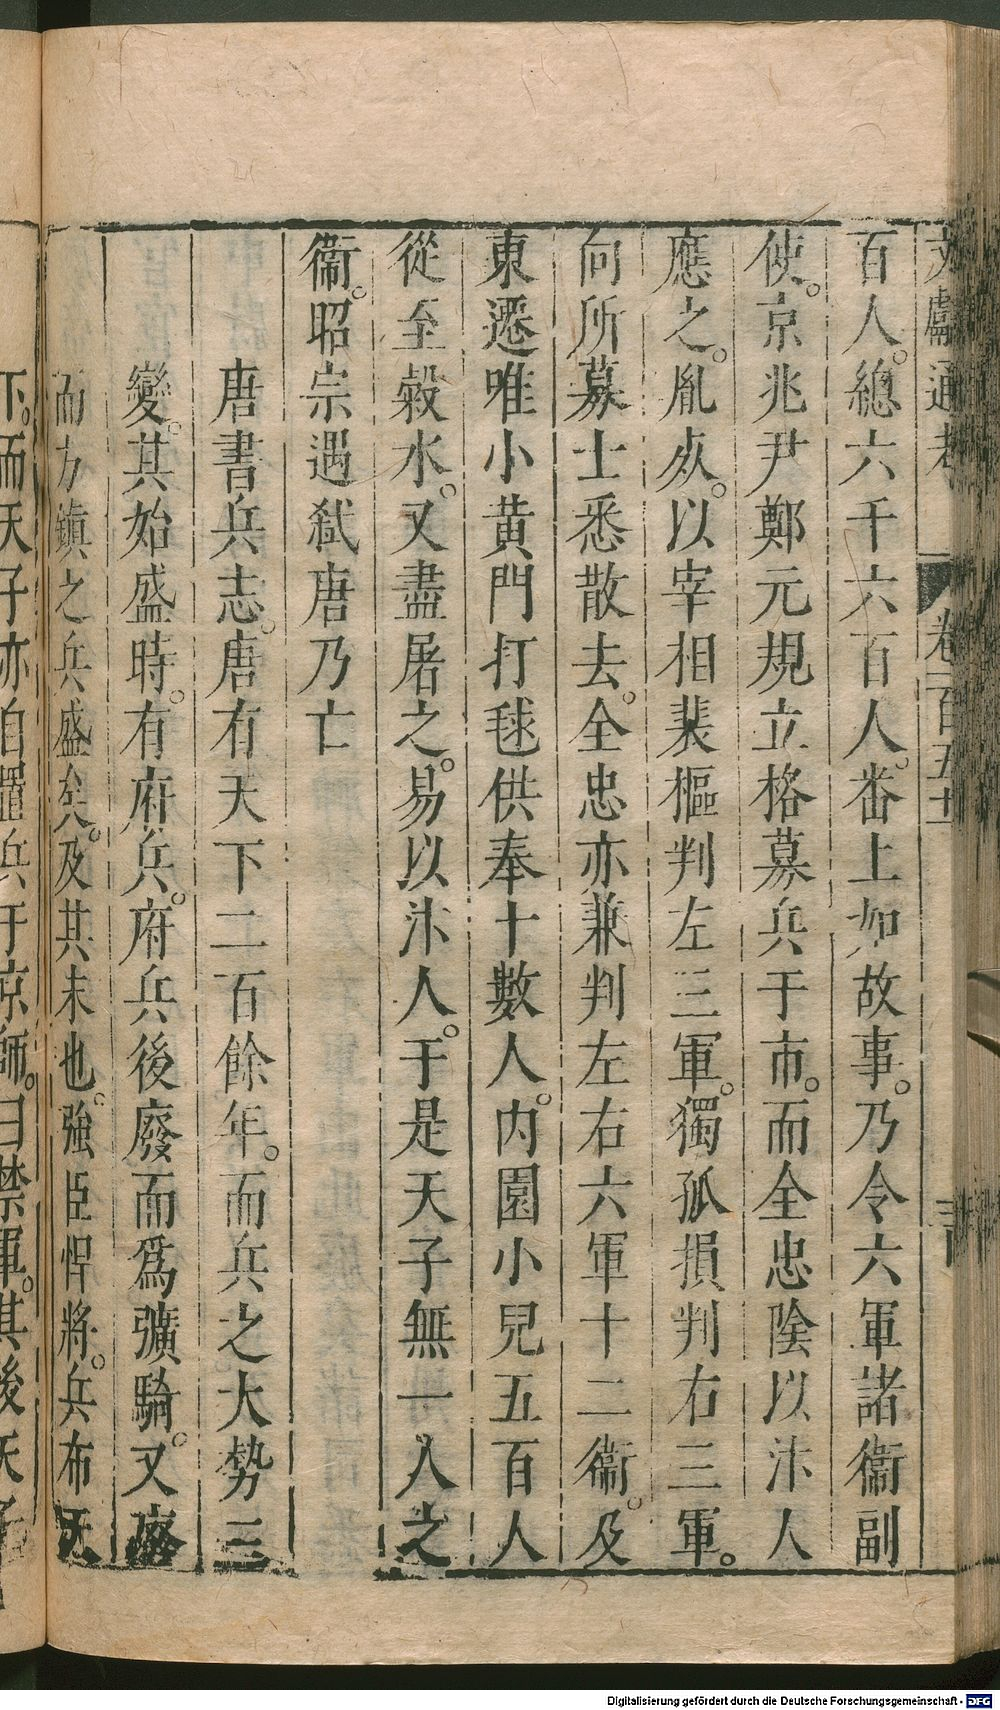 文獻通考 卷一百五十一
百人。總六千六百人。畨上如故事。乃令六軍諸衞副
使。京兆尹鄭元規立格募兵于市。而全忠陰以汴人
應之。胤死。以宰相裴樞判左三軍。獨孤損判右三軍。
向所募士悉散去。全忠亦兼判左右六軍十二衞。及
東遷唯小黄門打毬供奉十數人。内園小兒五百人
從至穀水。又盡屠之。易以汴人。于是天子無一人之
衞。昭宗遇弑唐乃亡
唐書兵志。唐有天下二百餘年。而兵之大勢三
變。其始盛時。有府兵。府兵後廢而爲彍騎。又廢
而方鎮之兵盛矣。及其末也。強臣悍將。兵布天
下。而天子亦自置兵于京師。曰禁軍。其後天子
Digitalisierung gefördert durch die Deutsche Forschungsgemeinschaft - DFG